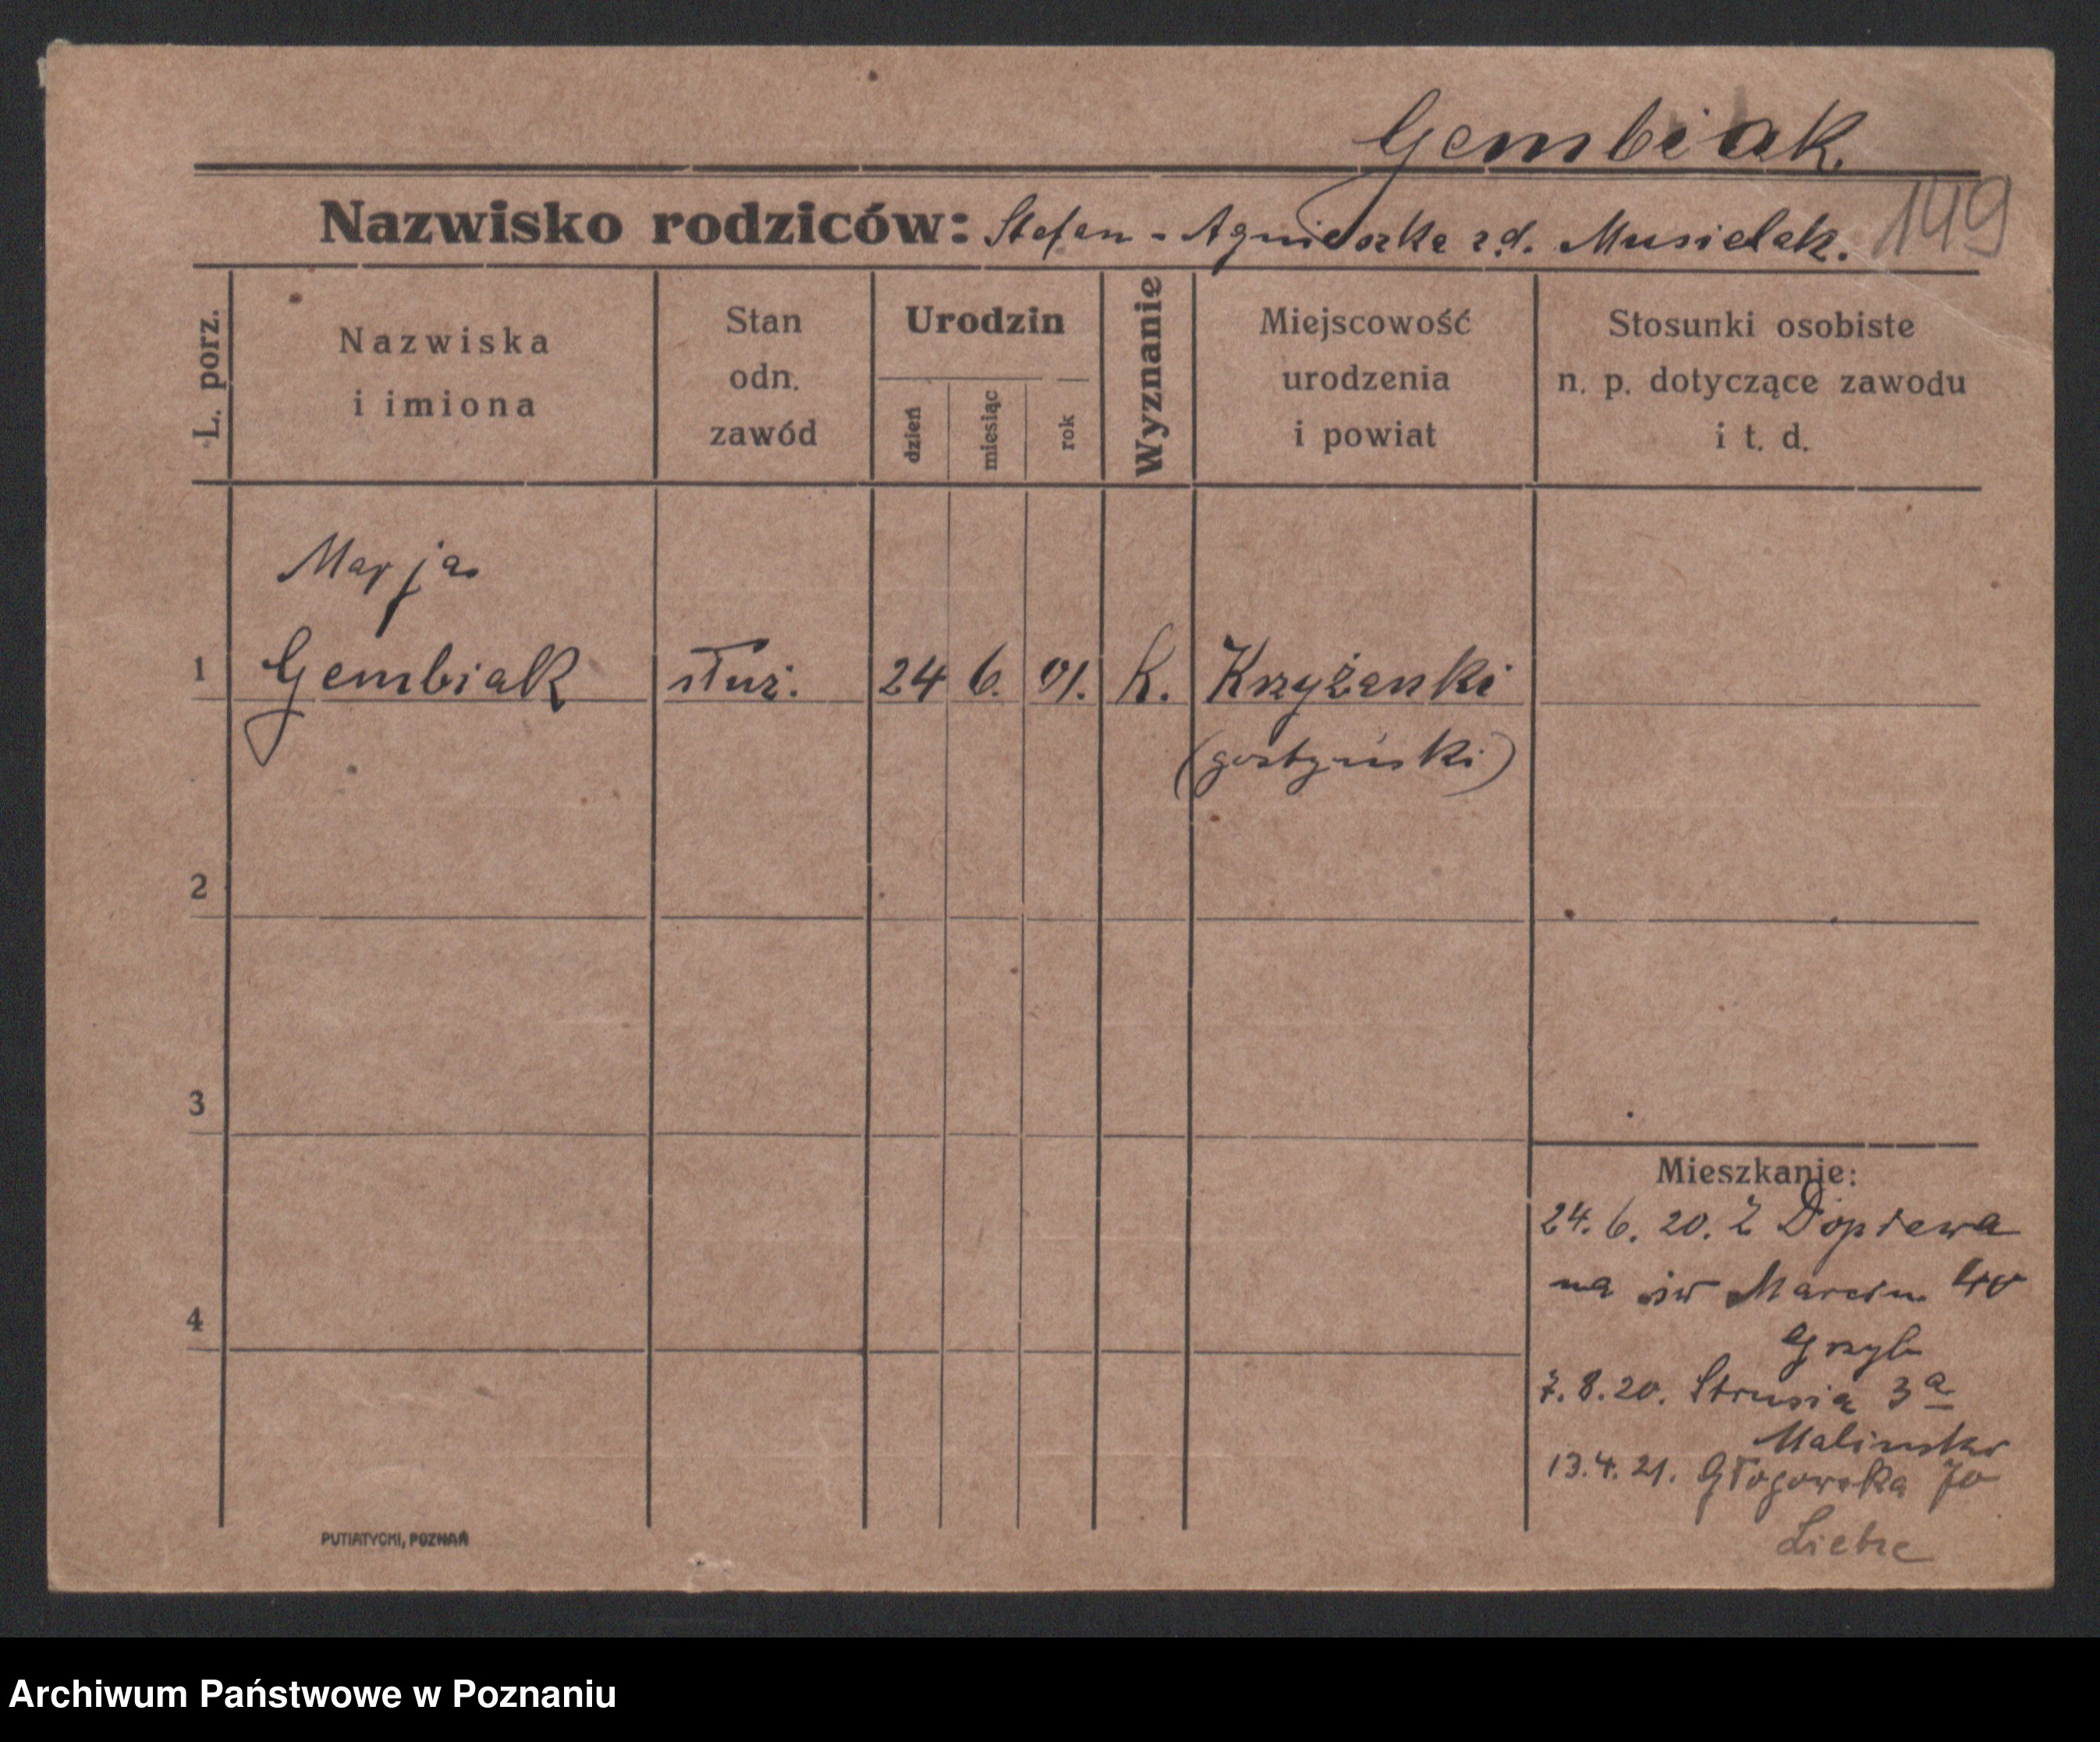 Gembiak.
Nazwisko rodziców: Stefan - Agnieszka z d. Musielak. 149
L. porz.
Nazwiska
i imiona
Stan
odn.
zawód
Urodzin
dzień
miesiąc
rok
Wyznanie
Miejscowość
urodzenia
i powiat
Stosunki osobiste
n. p. dotyczące zawodu
i t. d.
Marja
1 Gembiak służ. 24 6. 01. k. Krzyżanki
(gostyński)
2
3
4
Mieszkanie:
24. 6. 20. Z Dopiewa
na św Marcin 40
Grzyb
7. 8. 20. Strusia 3a
Malinska
13. 4. 21. Głogowska 70
PUTIATYCKI, POZNAŃ
Archiwum Państwowe w Poznaniu